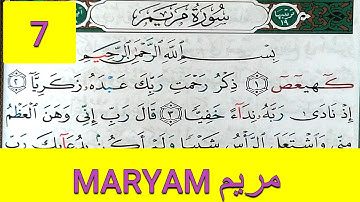 7
سُورَةُ مَرْيَمَ
ترتيبها ١٩
بِسْمِ اللَّهِ الرَّحْمَٰنِ الرَّحِيمِ
كٓهيعٓصٓ ١ ذِكْرُ رَحْمَتِ رَبِّكَ عَبْدَهُۥ زَكَرِيَّآ ٢
إِذْ نَادَىٰ رَبَّهُۥ نِدَآءً خَفِيًّا ٣ قَالَ رَبِّ إِنِّى وَهَنَ ٱلْعَظْمُ
مِنِّى وَٱشْتَعَلَ ٱلرَّأْسُ شَيْبًا وَلَمْ أَكُنۢ بِدُعَآئِكَ رَبِّ
MARYAM مريم